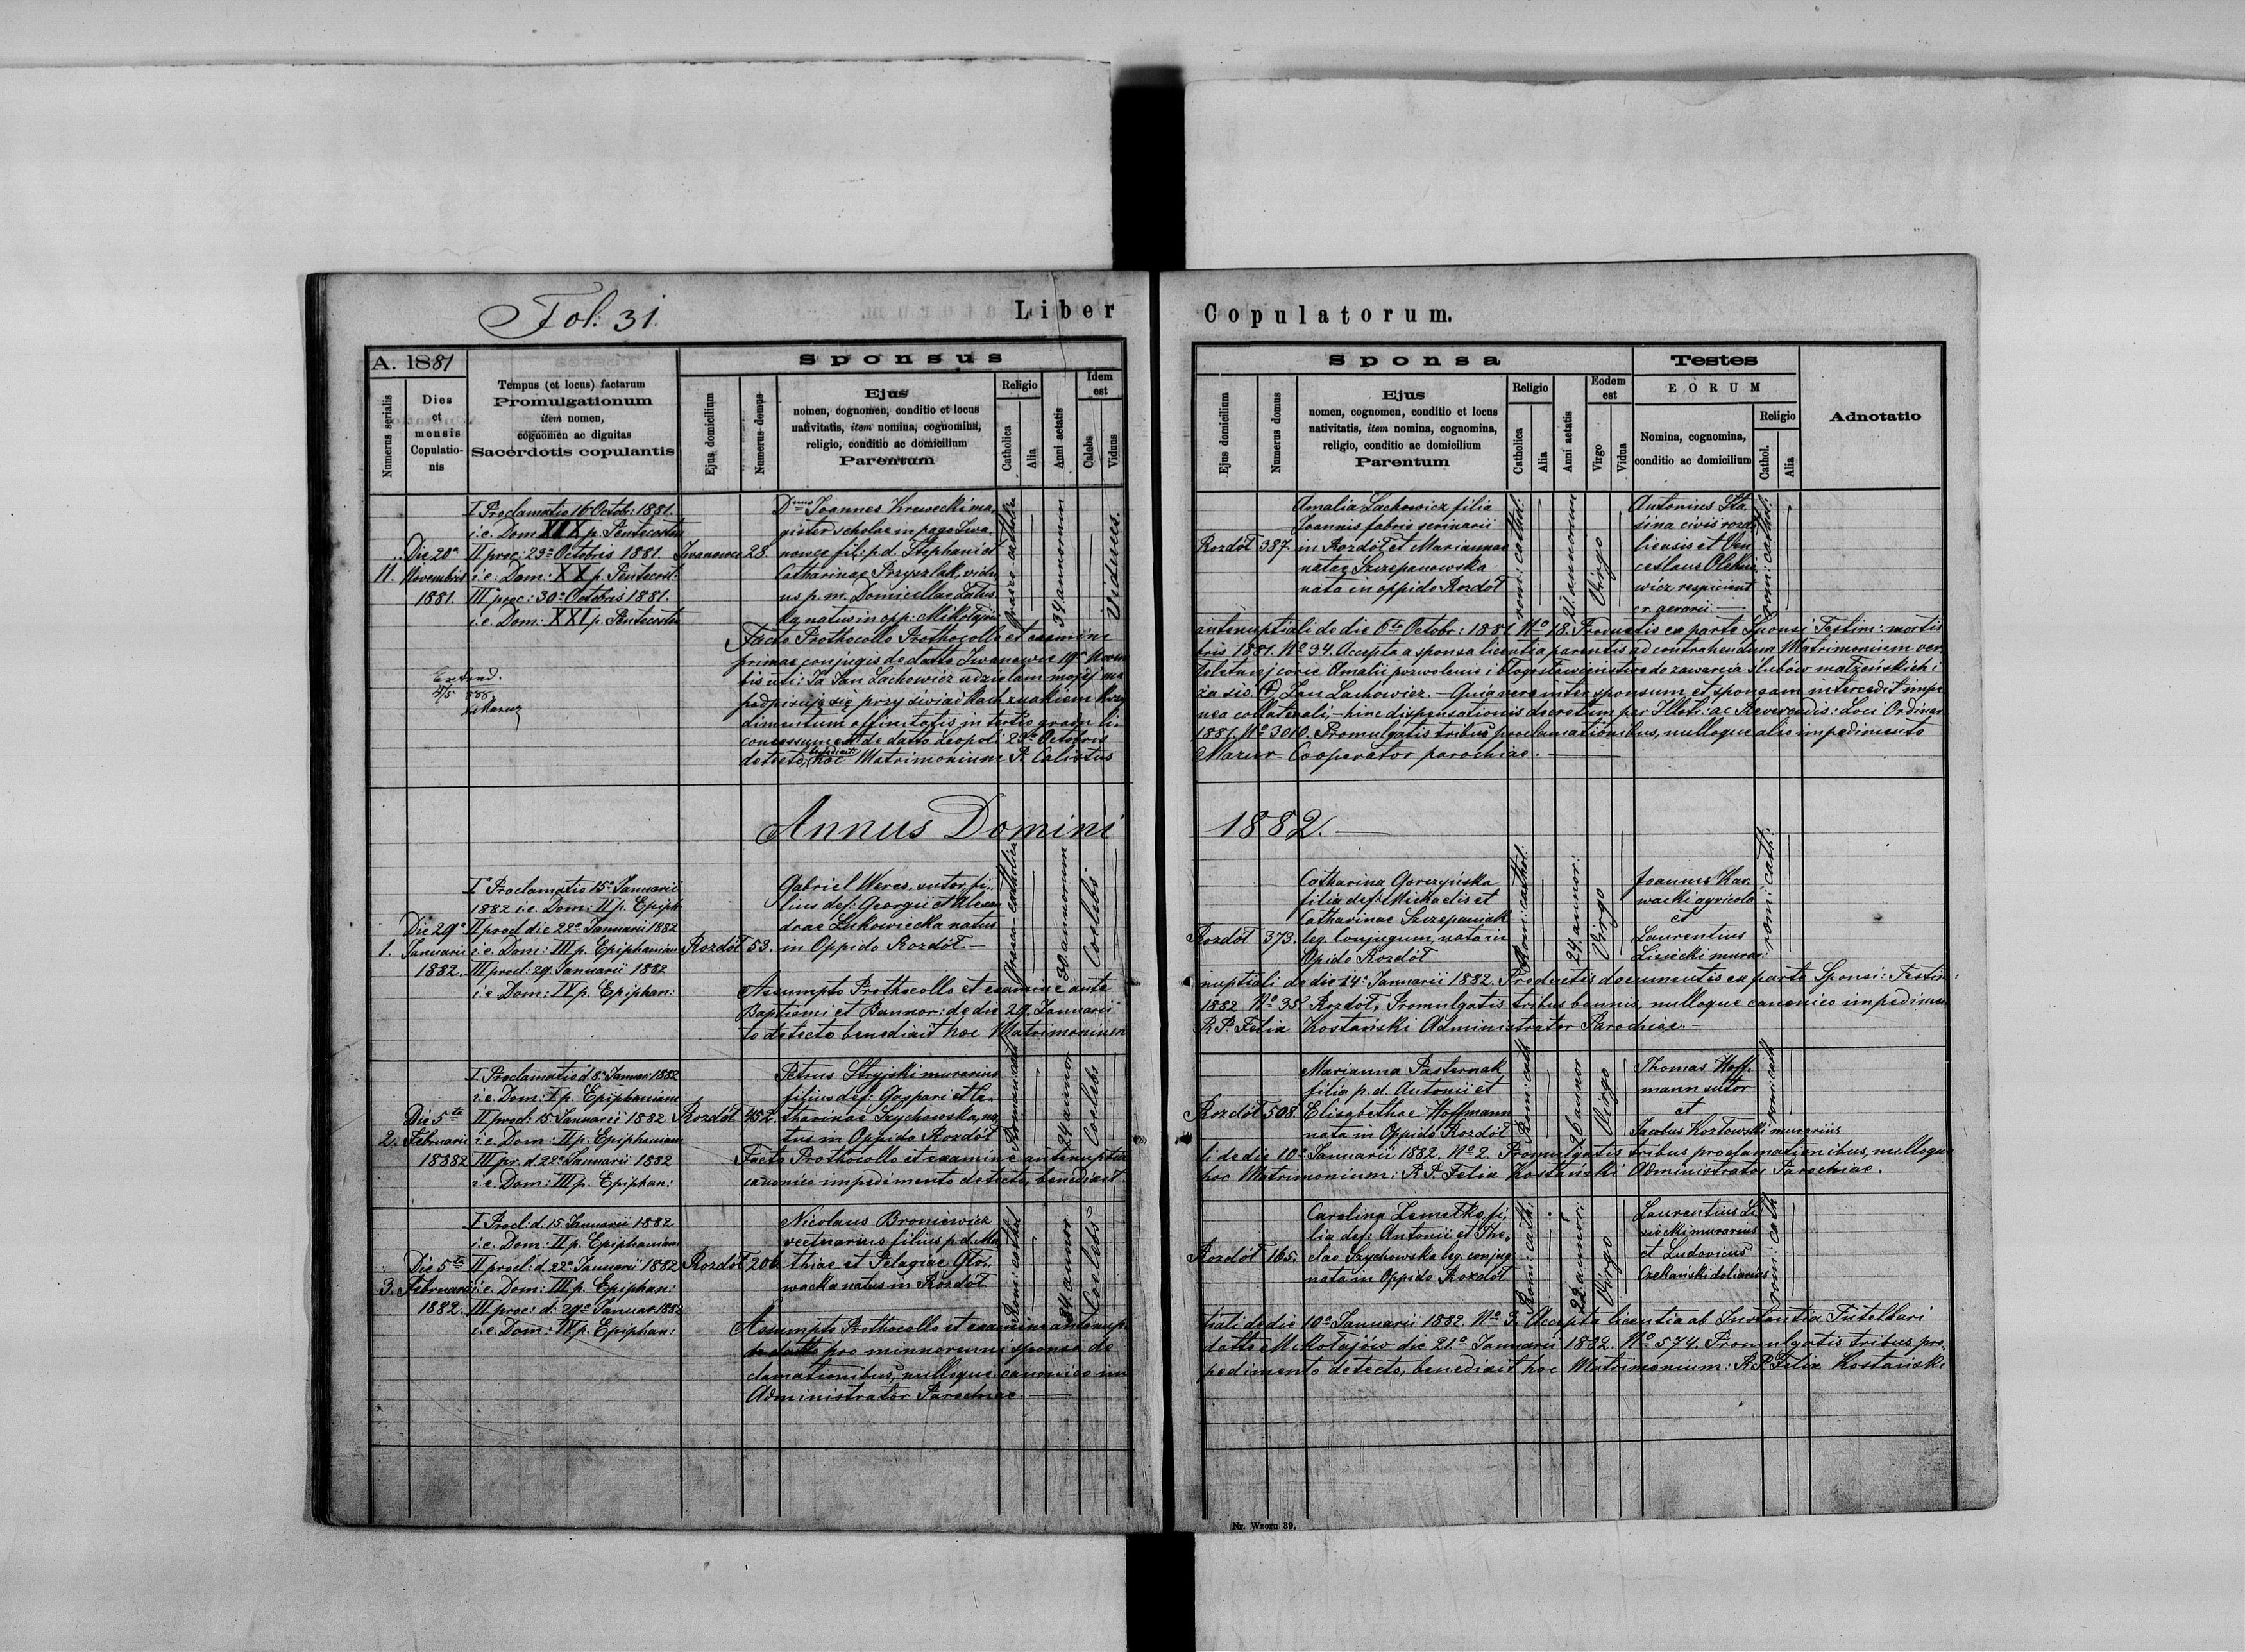 Fol: 31.
Liber
Copulatorum.
A. 1881
Numerus serialis
Dies
et
mensis
Copulatio-
nis
Tempus (et locus) factarum
Promulgationum
item nomen,
cognomen ac dignitas
Sacerdotis copulantis
Sponsus
Ejus domicilium
Numerus domus
Ejus
nomen, cognomen, conditio et locus
nativitatis, item nomina, cognomina,
religio, conditio ac domicilium
Parentum
Religio
Catholica
Alia
Anni aetatis
Idem
est
Caelebs
Viduus
Sponsa
Ejus domicilium
Numerus domus
Ejus
nomen, cognomen, conditio et locus
nativitatis, item nomina, cognomina,
religio, conditio ac domicilium
Parentum
Religio
Catholica
Alia
Anni aetatis
Eodem
est
Virgo
Vidua
Testes
EORUM
Nomina, cognomina,
conditio ac domicilium
Religio
Cathol.
Alia
Adnotatio
11.
Die 20a
Novembris
1881.
I Proclamatio 16 Octob: 1881.
i.e. Dom XIX p. Pentecosten
II proc: 23a Octobris 1881.
i.e. Dom: XX p. Pentecost:
III proc: 30a Octobris 1881.
i.e. Dom: XXI p. Pentecosten
Iwanowce
28.
Dnus Joannes Krewecki ma
gister scholae in pago Iwa
nowce fil: p.d. Stephani et
Catharinae Przyszlak, vidu
us p.m. Domicellae
ka natus in opp: Mikołajów
Graeco-catholica
34 annorum
Viduus.
Rozdół
387.
Amalia Lachowicz filia
Joannis fabris scrinarii
in Rozdół et Mariannae
natae Szczepanowska
nata in oppido Rozdół
rom: cathol:
21 annorum
Virgo
Antonius Sta
sina civis rozdo
liensis et Ven
ceslaus Olekno
wicz respicient
cr. aerarii
rom: cathol:
Facto Prothocollo Prothocollo et examine
antenuptiali de die 6ta Octobr: 1881. No 18. Productis ex parte Sponsi Testim: mortis
primae conjugis de datto Iwanowce 19a Novem
bris 1881. No 34. Accepta a sponsa licentia parentis ad contrahendum Matrimonium ver
bis uti: Ja Jan Lachowicz udzielam mojej ma
łoletniej corce Amelii pozwolenie i błogosławieństwo do zawarcia ślubów małżeńskich i
podpisuję się przy świadkach znakiem krzy
ża sic. (+) Jan Lachowicz. - Quia vero inter sponsum et sponsam intercedit impe
dimentum affinitatis in tertio gradu li
nea collaterali, - hinc dispensationis decretum per Illstr: ac Reverendis: Loci Ordinar
concessum est de datto Leopoli 29a Octobris
1881. No 3010. Promulgatis tribus proclamationibus, nulloque alio impedimento
detecto, benedixit hoc Matrimonium R. Calistus
Mazur Cooperator parochiae.
Extrad.
Mazur
Annus Domini 1882.
1.
Die 29a
Januarii
1882.
Ia Proclamatio 15a Januarii
1882 i.e. Dom: II p. Epiph.
II procl die 22a Januarii 1882
i.e. Dom: III p. Epiphaniam
III procl: 29. Januarii 1882
i.e. Dom: IV p. Epiphan:
Rozdół
53.
Gabriel Weres, sutor, fi-
lius def: Georgii et Alexan
drae Lukowiecka natus
in Oppido Rozdół -
Graeco-catholica
30 annorum
Coelebs
Rozdół
373.
Catharina Gorczyńska
filia def: Michaelis et
Catharinae Szczepaniak
leg. Conjugum, nata in
Opido Rozdół
Rom: cathol:
24 annor:
Virgo
Joannes Kar
wacki agricola
et
Laurentius
Lisiecki murar:
rom: cath:
Assumpto Prothocollo et examine ante
nuptiali de die 14a Januarii 1882. Productis documentis ex parte Sponsi: Testim:
Baptismi et Bannor: de die 29. Januarii
1882 No 35. Rozdół, Promulgatis tribus bannis, nulloque canonico impedimen
to detecto benedixit hoc Matrimonium
R.P. Felix Kostański Administrator Parochiae. -
2.
Die 5ta
Februarii
18882
I Proclamatio d. 8a Januar: 1882
i.e. Dom: I p. Epiphaniam
II procl: 15. Januarii 1882
i.e. Dom: II p. Epiphaniam
III pr. d. 22a Januarii 1882
i.e. Dom: III p. Epiphan:
Rozdół
452.
Petrus Stryjski murarius
filius def: Gaspari et Ca
tharinae Szychowska, na
tus in Oppido Rozdół
Romano cath
24 annor
Coelebs
Rozdół
508.
Marianna Pasternak
filia p.d. Antonii et
Elisabethae Hoffmann
nata in Oppido Rozdół
Rom: cath
26 annor
Virgo
Thomas Hoff-
mann sutor
et
Jacobus Kozłowski murarius
rom: cath
Facto Prothocollo et examine antenuptia
li de die 10a Januarii 1882. No 2. Promulgatis tribus proclamationibus, nulloque
canonico impedimento detecto, benedixit
hoc Matrimonium: R.P. Felix Kostański Administrator Parochiae.
3.
Die 5ta
Februarii
1882.
I Procl: d. 15. Januarii 1882
i.e. Dom: II p. Epiphaniam
II procl: d. 22a Januarii 1882
i.e. Dom: III p. Epiphan:
III proc: d: 29a Januar: 1882
i.e. Dom: IV p. Epiphan:
Rozdół
206.
Nicolaus Broniewicz
vectuarius filius p.d. Ma
thiae et Pelagiae Gło-
wacka natus in Rozdół
Rom: cathol
34 annor
Coelebs
Rozdół
165.
Carolina Zematko, fi-
lia def: Antonii et The-
clae Szychowska leg. conjug
nata in Oppido Rozdół
Rom: cath:
22 annor:
Virgo
Laurentius Li
siecki murarius
et Ludovicus
Czekański doliarius
rom: cath
Assumpto Prothocollo et examine antenup-
tiali de die 10a Januarii 1882 No 3. Accepta licentia ab Instantia Tutellari
pro minnorenni sponsa de
datto Mikołajów die 21a Januarii 1882. No 574. Promulgatis tribus pro
clamationibus, nulloque canonico im
pedimento detecto, benedixit hoc Matrimonium: R.P. Felix Kostański
Administrator Parochiae.
Nr. Wzoru 39.